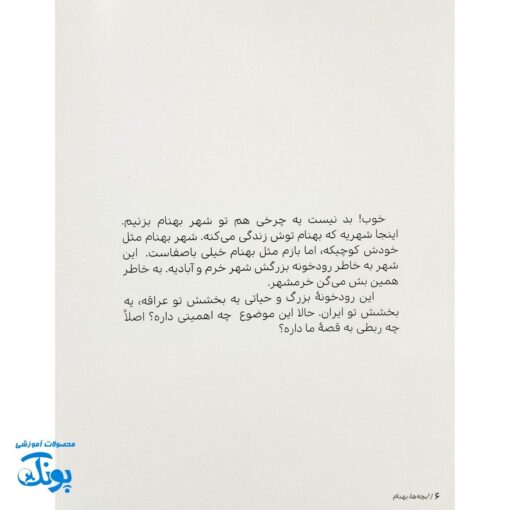 خوب! بد نیست یه چرخی هم تو شهر بهنام بزنیم.
اینجا شهریه که بهنام توش زندگی می‌کنه. شهر بهنام مثل
خودش کوچیکه، اما بازم مثل بهنام خیلی باصفاست. این
شهر به خاطر رودخونه بزرگش شهر خرم و آبادیه. به خاطر
همین بش می‌گن خرمشهر.
این رودخونهٔ بزرگ و حیاتی یه بخشش تو عراقه، یه
بخشش تو ایران. حالا این موضوع چه اهمیتی داره؟ اصلاً
چه ربطی به قصهٔ ما داره؟
محصولات آموزشی
پونک
۶ / ازبچه‌ها، بهنام